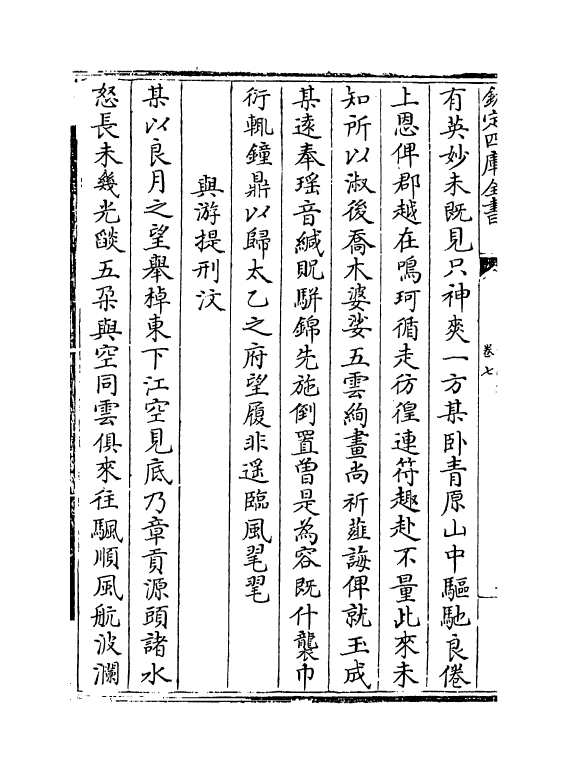 欽定四庫全書
卷七
有英妙未既見只神爽一方某卧青原山中驅馳良倦
上恩俾郡越在鳴珂循走彷徨連符趣赴不量此來未
知所以淑後喬木婆娑五雲絢畫尚祈薤誨俾就玉成
某逺奉瑶音緘貺駢錦先施倒置曽是為容既什襲巾
衍輒鐘鼎以歸太乙之府望履非遥臨風毣毣
與游提刑汶
某以良月之望舉棹東下江空見底乃章貢源頭諸水
怒長未幾光燄五朶與空同雲俱來往颿順風航波瀾